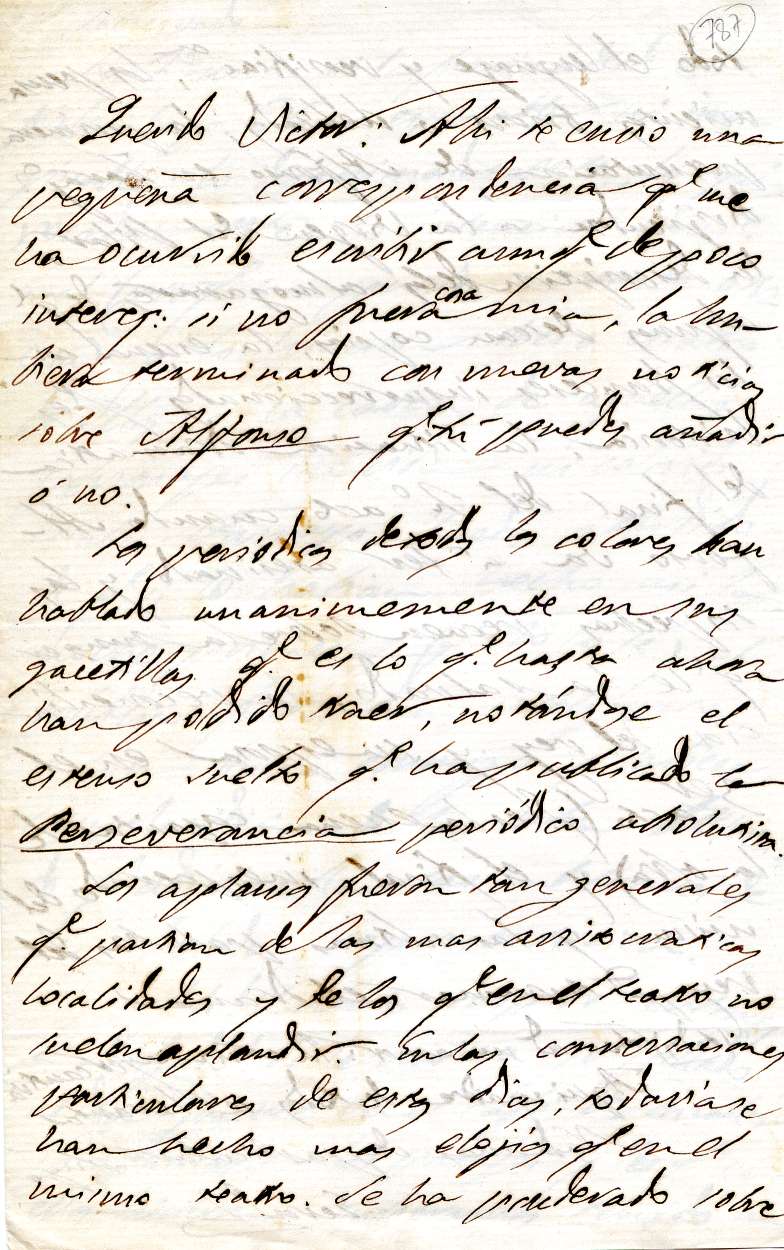 787
Querido Victor: Ahi te envio una
pequeña correspondencia q.e me
ha ocurrido escribir aunq.e de poco
interes: si no fuera cosa mia, la hu-
biera terminado con nuevas noticias
sobre Alfonso q.e tú puedes añadir
ó no.
Los periódicos de todos los colores han
hablado unanimemente en sus
gacetillas q.e es lo q.e hasta ahora
han podido traer, notándose el
estenso suelto q.e ha publicado la
Perseverancia periódico absolutista.
Los aplausos fueron tan generales
q.e partian de las mas aristocraticas
localidades y de los q.e en el teatro no
suelen aplaudir. En las conversaciones
particulares de estos dias, todavia se
han hecho mas elojios q.e en el
mismo teatro. Se ha ponderado sobre